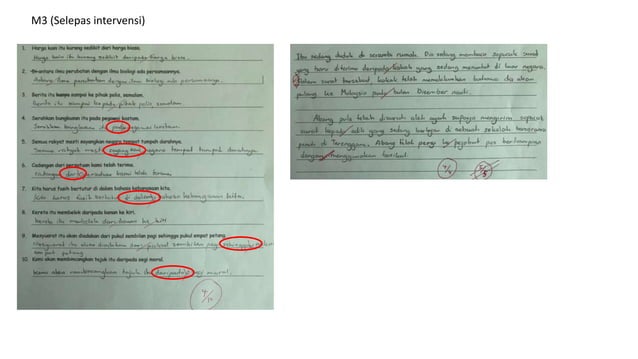 M3 (Selepas intervensi)
1. Harga kain itu kurang sedikit dari harga biasa.
Harga kain itu kurang sedikit daripada harga biasa.
2. antara ilmu perubatan dengan ilmu biologi ada persamaannya.
3. Berita itu sampai ke pihak polis, semalam.
Berita itu sampai kepada pihak polis, semalam.
4. Serahkan bungkusan itu pada pegawai kastam.
Serahkan bungkusan itu pada pegawai kastam.
5. Semua rakyat mesti sayangkan negara tempat tumpah darahnya.
Semua rakyat mesti sayang negara tempat tumpah darahnya.
6. Cadangan dari persatuan kami telah terima.
Cadangan dari kami telah terima.
7. Kita harus fasih bertutur di dalam bahasa kebangsaan kita.
Kita harus fasih bertutur di dalam bahasa kebangsaan kita.
8. Kereta itu membelok daripada kanan ke kiri.
Kereta itu membelok dari kanan ke kiri
9. Mesyuarat itu akan diadakan dari pukul sembilan pagi sehingga pukul empat petang.
Mesyuarat itu akan diadakan dari pukul sembilan pagi sehingga
empat petang
10. Kami akan membincangkan tajuk itu daripada segi moral.
Kami akan membincangkan tajuk itu daripada segi moral.
4/10
Ibu sedang duduk di serambi rumah. Dia sedang membaca sepucuk surat
yang baru diterima daripada kakak yang sedang menuntut di luar negara.
Dalam surat tersebut, kakak telah memaklumkan bahawa dia akan
pulang ke Malaysia pada bulan Disember nanti.
Abang pula telah disuruh oleh ayah supaya mengirim sepucuk
surat kepada adik yang sedang belajar di sebuah sekolah berasrama
penuh di Terengganu. Abang telah pergi ke pejabat pos berhampiran
dengan menggunakan basikal.